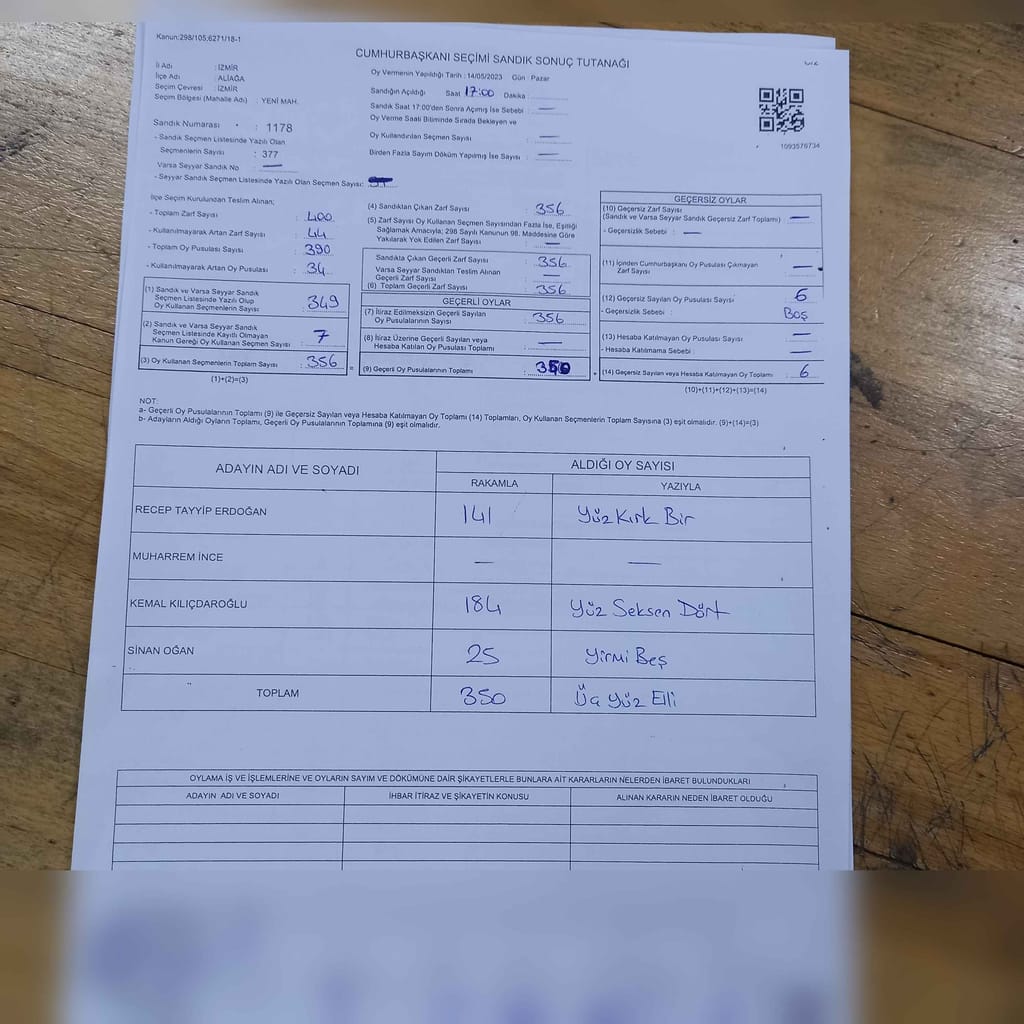 Kanun:298/105;6271/18-1
CUMHURBAŞKANI SEÇİMİ SANDIK SONUÇ TUTANAĞI
İli Adı : İZMİR
İlçe Adı : ALİAĞA
Seçim Çevresi : İZMİR
Seçim Bölgesi (Mahalle Adı) : YENİ MAH.
Sandık Numarası : 1178
- Sandık Seçmen Listesinde Yazılı Olan
Seçmenlerin Sayısı : 377
Varsa Seyyar Sandık No —
- Seyyar Sandık Seçmen Listesinde Yazılı Olan Seçmen Sayısı:
Oy Vermenin Yapıldığı Tarih : 14/05/2023 Gün : Pazar
Sandığın Açıldığı Saat 17:00 Dakika :
Sandık Saat 17.00'den Sonra Açımış İse Sebebi : —
Oy Verme Saati Bitiminde Sırada Bekleyen ve
Oy Kullandırılan Seçmen Sayısı : —
Birden Fazla Sayım Döküm Yapılmış İse Sayısı : —
1093576734
İlçe Seçim Kurulundan Teslim Alınan;
- Toplam Zarf Sayısı : 400
- Kullanılmayarak Artan Zarf Sayısı : 44
- Toplam Oy Pusulası Sayısı : 390
- Kullanılmayarak Artan Oy Pusulası : 34
(1) Sandık ve Varsa Seyyar Sandık
Seçmen Listesinde Yazılı Olup
Oy Kullanan Seçmenlerin Sayısı : 349
(2) Sandık ve Varsa Seyyar Sandık
Seçmen Listesinde Kayıtlı Olmayan
Kanun Gereği Oy Kullanan Seçmen Sayısı : 7
(3) Oy Kullanan Seçmenlerin Toplam Sayısı : 356
(1)+(2)=(3)
(4) Sandıktan Çıkan Zarf Sayısı : 356
(5) Zarf Sayısı Oy Kullanan Seçmen Sayısından Fazla İse, Eşitliği
Sağlamak Amacıyla; 298 Sayılı Kanunun 98. Maddesine Göre
Yakılarak Yok Edilen Zarf Sayısı : —
Sandıkta Çıkan Geçerli Zarf Sayısı : 356
Varsa Seyyar Sandıktan Teslim Alınan
Geçerli Zarf Sayısı : —
(6) Toplam Geçerli Zarf Sayısı : 356
GEÇERLİ OYLAR
(7) İtiraz Edilmeksizin Geçerli Sayılan
Oy Pusulalarının Sayısı : 356
(8) İtiraz Üzerine Geçerli Sayılan veya
Hesaba Katılan Oy Pusulası Toplamı : —
(9) Geçerli Oy Pusulalarının Toplamı : 350
GEÇERSİZ OYLAR
(10) Geçersiz Zarf Sayısı
(Sandık ve Varsa Seyyar Sandık Geçersiz Zarf Toplamı) —
- Geçersizlik Sebebi : —
(11) İçinden Cumhurbaşkanı Oy Pusulası Çıkmayan
Zarf Sayısı : —
(12) Geçersiz Sayılan Oy Pusulası Sayısı : 6
- Geçersizlik Sebebi : Boş
(13) Hesaba Katılmayan Oy Pusulası Sayısı : —
- Hesaba Katılmama Sebebi : —
(14) Geçersiz Sayılan veya Hesaba Katılmayan Oy Toplamı : 6
(10)+(11)+(12)+(13)=(14)
NOT:
a- Geçerli Oy Pusulalarının Toplamı (9) ile Geçersiz Sayılan veya Hesaba Katılmayan Oy Toplamı (14) Toplamları, Oy Kullanan Seçmenlerin Toplam Sayısına (3) eşit olmalıdır. (9)+(14)=(3)
b- Adayların Aldığı Oyların Toplamı, Geçerli Oy Pusulalarının Toplamına (9) eşit olmalıdır.
ADAYIN ADI VE SOYADI ALDIĞI OY SAYISI
RAKAMLA YAZIYLA
RECEP TAYYİP ERDOĞAN 141 Yüz Kırk Bir
MUHARREM İNCE — —
KEMAL KILIÇDAROĞLU 184 Yüz Seksen Dört
SİNAN OĞAN 25 Yirmi Beş
TOPLAM 350 Üç Yüz Elli
OYLAMA İŞ VE İŞLEMLERİNE VE OYLARIN SAYIM VE DÖKÜMÜNE DAİR ŞİKAYETLERLE BUNLARA AİT KARARLARIN NELERDEN İBARET BULUNDUKLARI
ADAYIN ADI VE SOYADI İHBAR İTİRAZ VE ŞİKAYETİN KONUSU ALINAN KARARIN NEDEN İBARET OLDUĞU